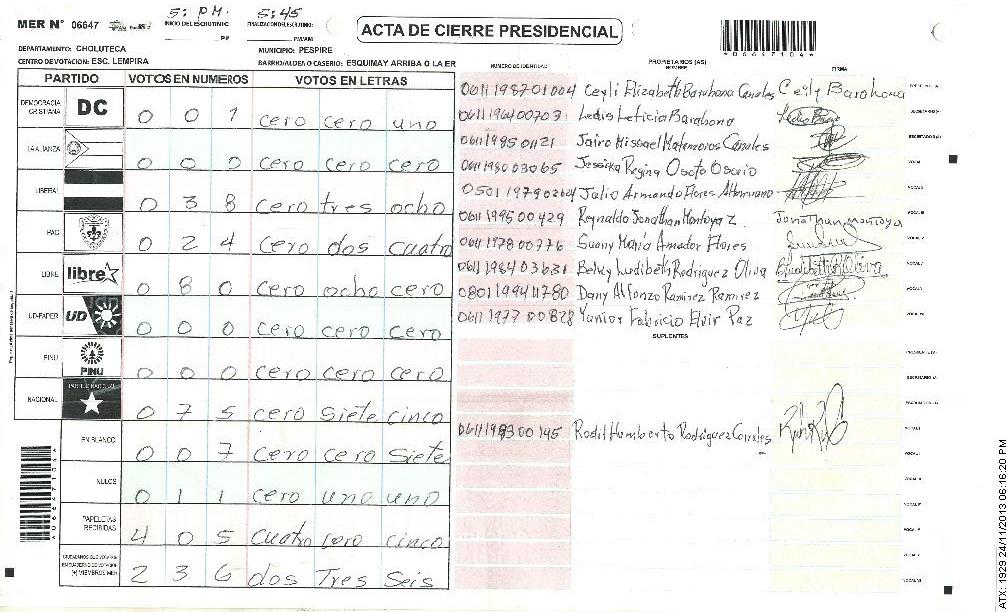 MER N° 06647
5: PM.
INICIO DEL ESCRUTINIO:
5:45
FINALIZACION DEL ESCRUTINIO:
PM
PM/AM
ACTA DE CIERRE PRESIDENCIAL
DEPARTAMENTO: CHOLUTECA
MUNICIPIO: PESPIRE
CENTRO DE VOTACION: ESC. LEMPIRA
BARRIO/ALDEA O CASERIO: ESQUIMAY ARRIBA O LA ER
PARTIDO VOTOS EN NUMEROS VOTOS EN LETRAS
DEMOCRACIA CRISTIANA DC 0 0 1 cero cero uno
LA ALIANZA 0 0 0 cero cero cero
LIBERAL 0 3 8 cero tres ocho
PAC 0 2 4 cero dos cuatro
LIBRE libre 0 8 0 cero ocho cero
UD-FAPER UD 0 0 0 cero cero cero
PINU PINU 0 0 0 cero cero cero
NACIONAL PARTIDO NACIONAL 0 7 5 cero siete cinco
EN BLANCO 0 0 7 cero cero siete
NULOS 0 1 1 cero uno uno
PAPELETAS RECIBIDAS 4 0 5 cuatro cero cinco
CIUDADANOS QUE VOTARON EN CUADERNO DE VOTACION (+) MIEMBROS MER 2 3 6 dos Tres Seis
NUMERO DE IDENTIDAD
PROPIETARIOS (AS)
NOMBRE
FIRMA
0611198701004 Ceyli Elizabeth Barahona Canales Ceily Barahona
0611196400703 Ledis Leticia Barahona
Jairo Misael Matamoros Canales
0611198003065 Jessica Regina Osorto Osorio
0501197902104 Julio Armando Flores
0611199500429 Reynaldo Jonathan Montoya Z. Jonathan Montoya
0611197800776 Suany María Amador Flores
0611198403631 Belky Ludibeth Rodriguez Oliva
0801199411780 Dany Alfonzo Ramirez Ramirez
0611197700828 Yunior Fabricio Elvir Paz
SUPLENTES
0611198300145 Rodil Humberto Rodriguez Canales
A06647104
ATX: 1929 24/11/2013 06:16:20 PM